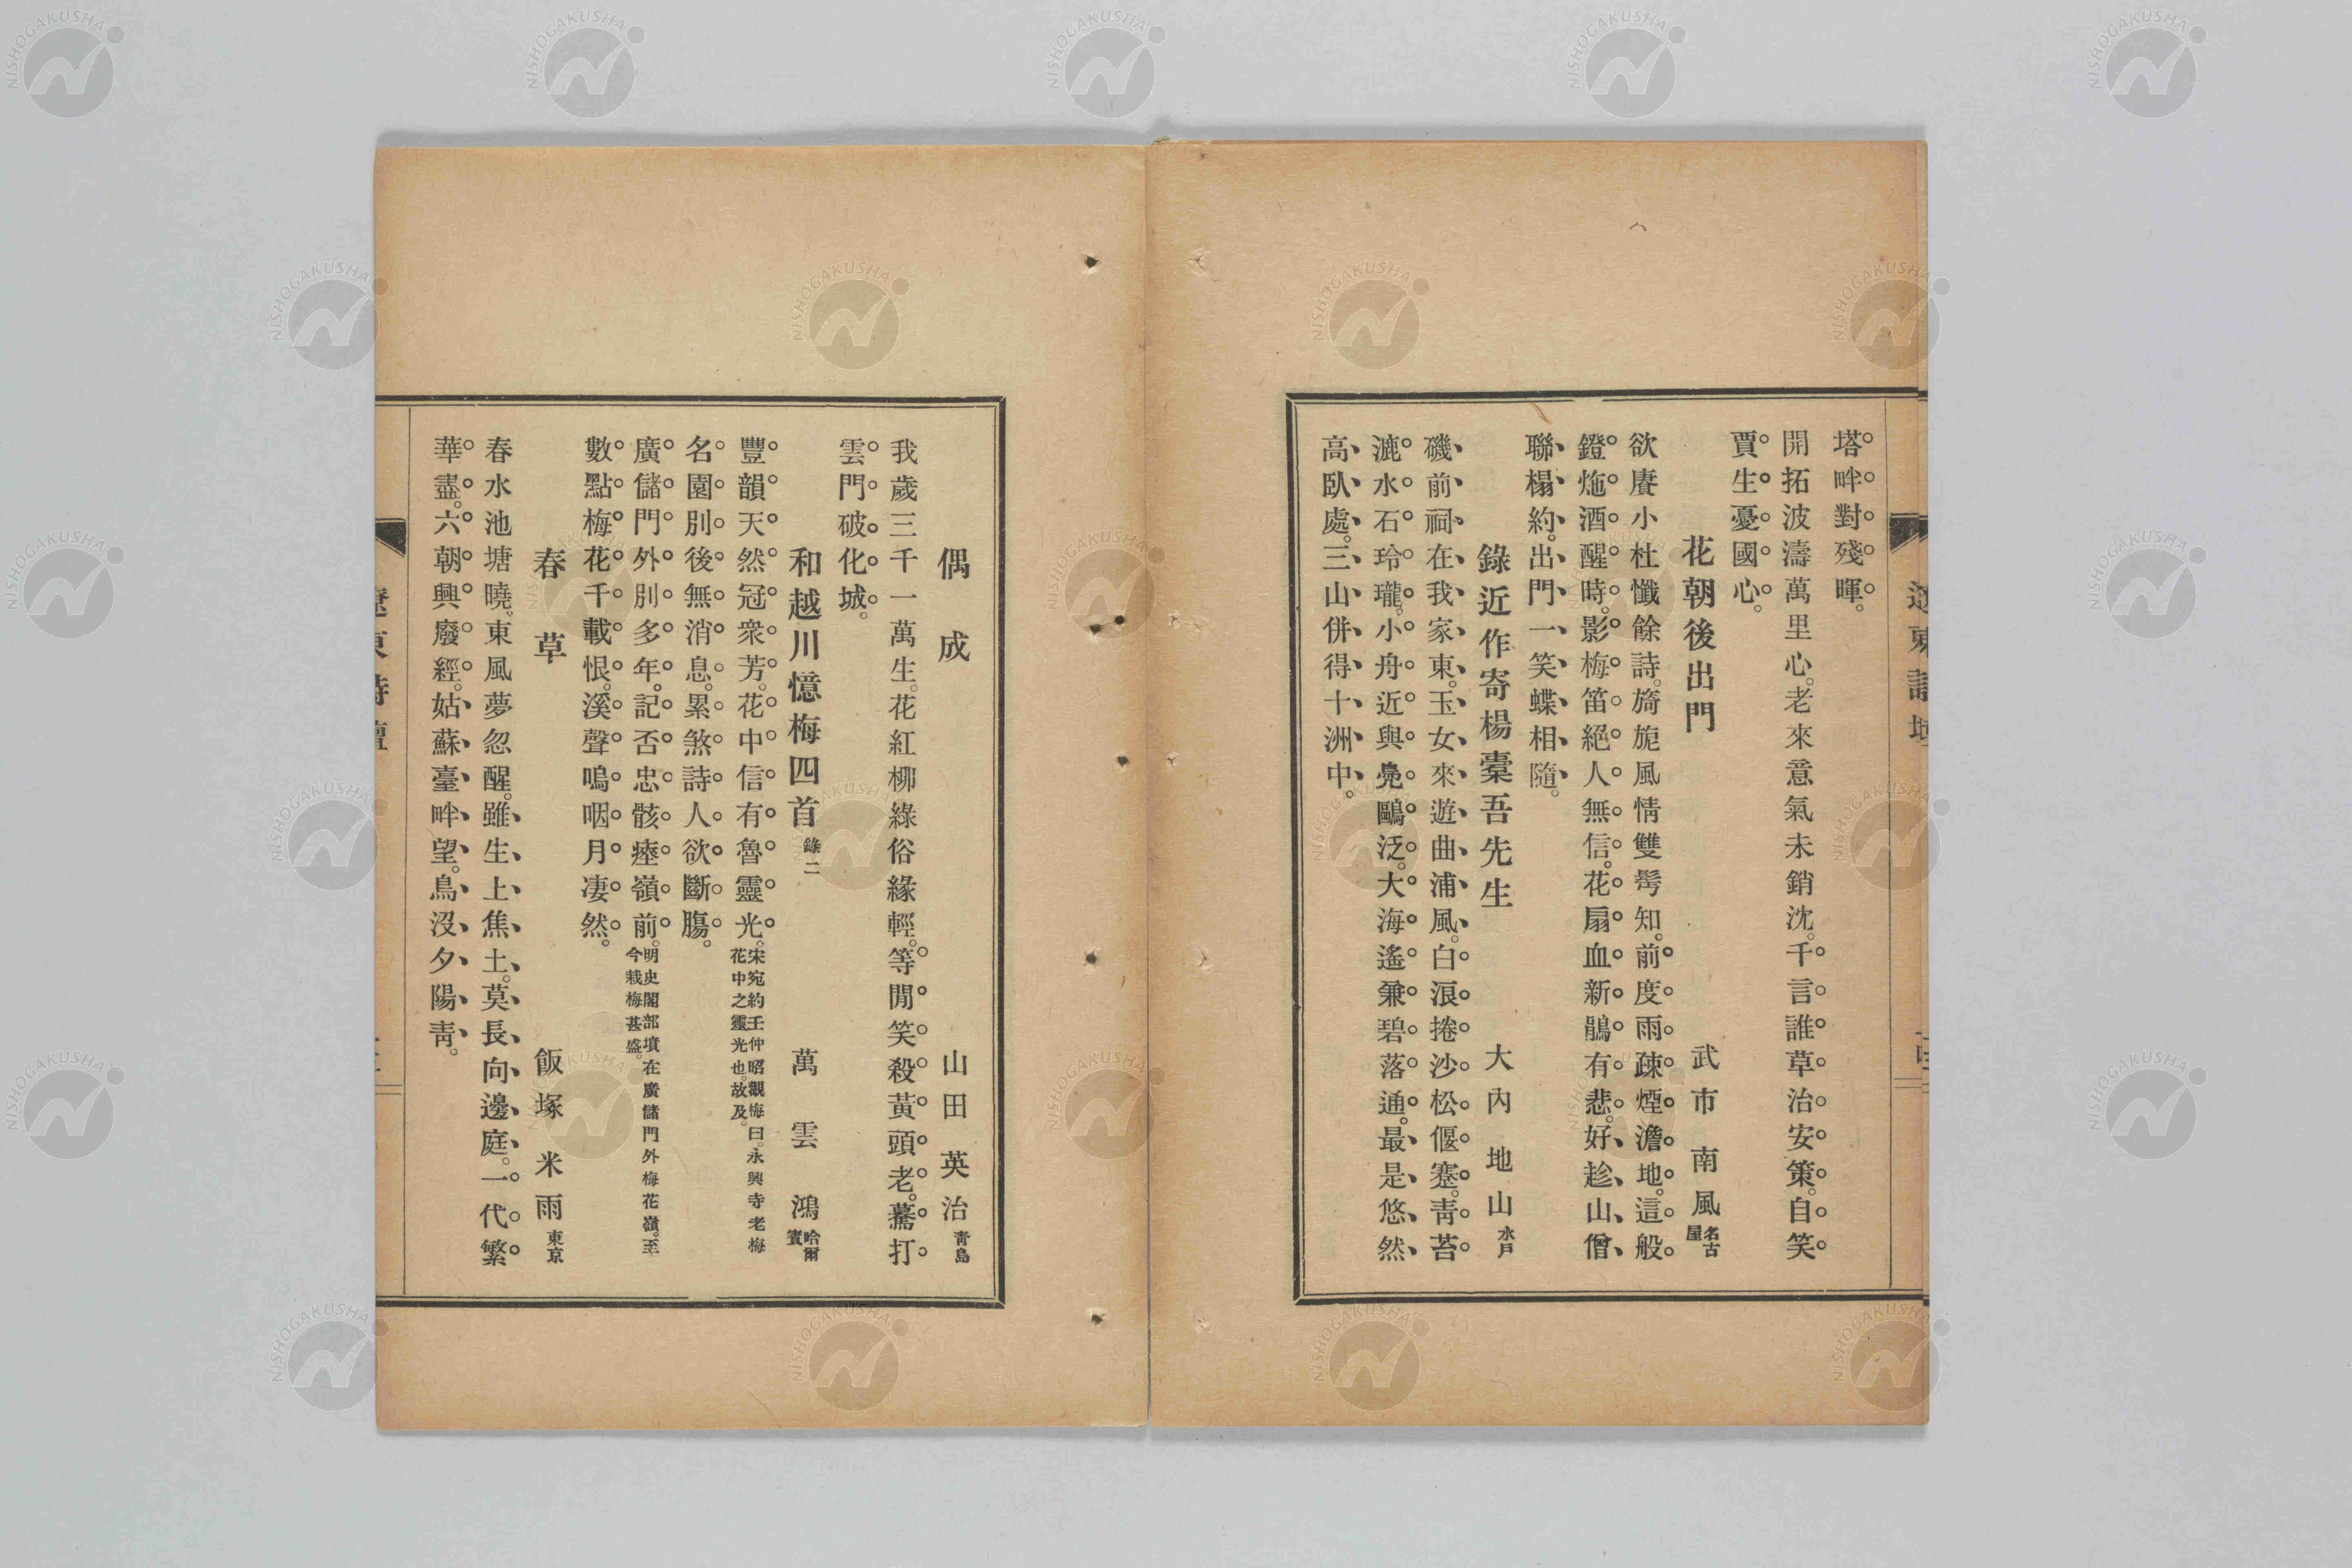 塔畔對殘暉。
開拓波濤萬里心。老來意氣未銷沈。千言誰草治安策。自笑
賈生憂國心。
花朝後出門 武市南風 名古屋
欲賡小杜懺餘詩。旖旎風情雙髩知。前度雨疎煙澹地。這般
鐙灺酒醒時。影梅笛絕人無信。花扇血新鵑有悲。好趁山僧
聯榻約。出門一笑蝶相隨。
錄近作寄楊槖吾先生 大內地山 水戶
磯前祠在我家東。玉女來遊曲浦風。白浪捲沙松偃蹇。靑苔
漉水石玲瓏。小舟近與鳧鷗泛。大海遙兼碧落通。最是悠然
高臥處。三山併得十洲中。
偶成 山田英治 靑島
我歲三千一萬生。花紅柳綠俗緣輕。等閒笑殺黃頭老。驀打
雲門破化城。
和越川憶梅四首 錄二 萬雲鴻 哈爾賓
豐韻天然冠衆芳。花中信有魯靈光。宋宛約壬仲昭觀梅曰。永興寺老梅花中之靈光也。故及。
名園別後無消息。累煞詩人欲斷腸。
廣儲門外別多年。記否忠骸瘞嶺前。明史閣部墳在廣儲門外梅花嶺。至今栽梅甚盛。
數點梅花千載恨。溪聲嗚咽月凄然。
春草 飯塚米雨 東京
春水池塘曉。東風夢忽醒。雖生上焦土。莫長向邊庭。一代繁
華盡。六朝興廢經。姑蘇臺畔望。鳥沒夕陽靑。
遼東詩壇
NISHOGAKUSHA